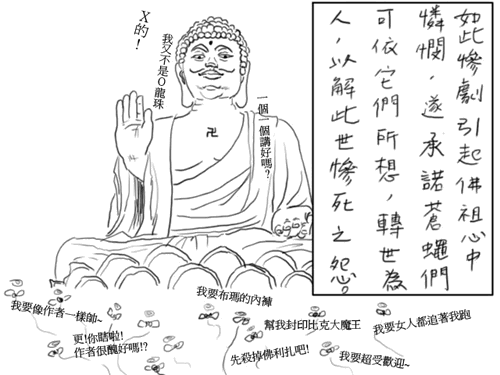 如此慘劇引起佛祖心中
憐憫，遂承諾蒼蠅們
可依它們所想，轉世為
人，以解此世慘死之怨。
X的！
我又不是O龍珠
一個一個講好嗎？
卍
我要像作者一樣帥~
更!你瞎啦!
作者很醜好嗎!?
我要布瑪的內褲
先殺掉佛利扎吧!
幫我封印比克大魔王
我要超受歡迎~
我要女人都追著我跑